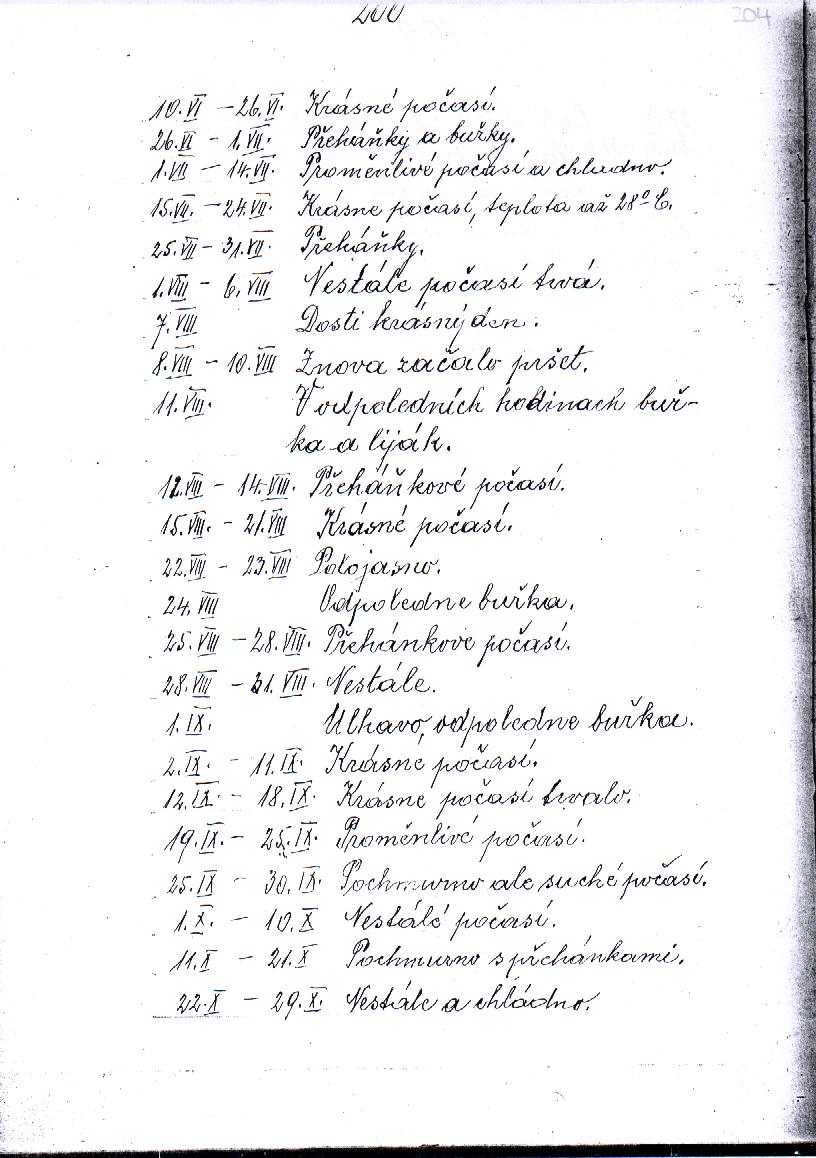 200
204
10.VI – 26.VI. Krásné počasí.
26.VI – 1.VII. Přeháňky a buřky.
1.VII – 14.VII. Proměnlivé počasí a chladno.
15.VII. – 24.VII. Krásne počasí, teplota až 28° C.
25.VII – 31.VII. Přeháňky.
1.VIII – 6.VIII Nestále počasí trvá.
7.VIII Dosti krásný den.
8.VIII – 10.VIII Znova začalo pršet.
11.VIII. V odpoledních hodinach buř-
ka a liják.
12.VIII – 14.VIII. Přeháňkové počasí.
15.VIII. – 21.VIII Krásné počasí.
22.VIII – 23.VIII Polojasno.
24.VIII Odpoledne buřka.
25.VIII – 28.VIII. Přehánkove počasí.
28.VIII – 31.VIII. Nestále.
1.IX. Ulhavo, odpoledne buřka.
2.IX. – 11.IX. Krásne počasí.
12.IX. – 18.IX. Krásne počasí trvalo.
19.IX. – 25.IX. Proměnlivé počasí.
25.IX – 30.IX. Pochmurno ale suché počasí.
1.X. – 10.X Nestálé počasí.
11.X – 21.X Pochmurno s přehánkami.
22.X – 29.X. Nestále a chládno.